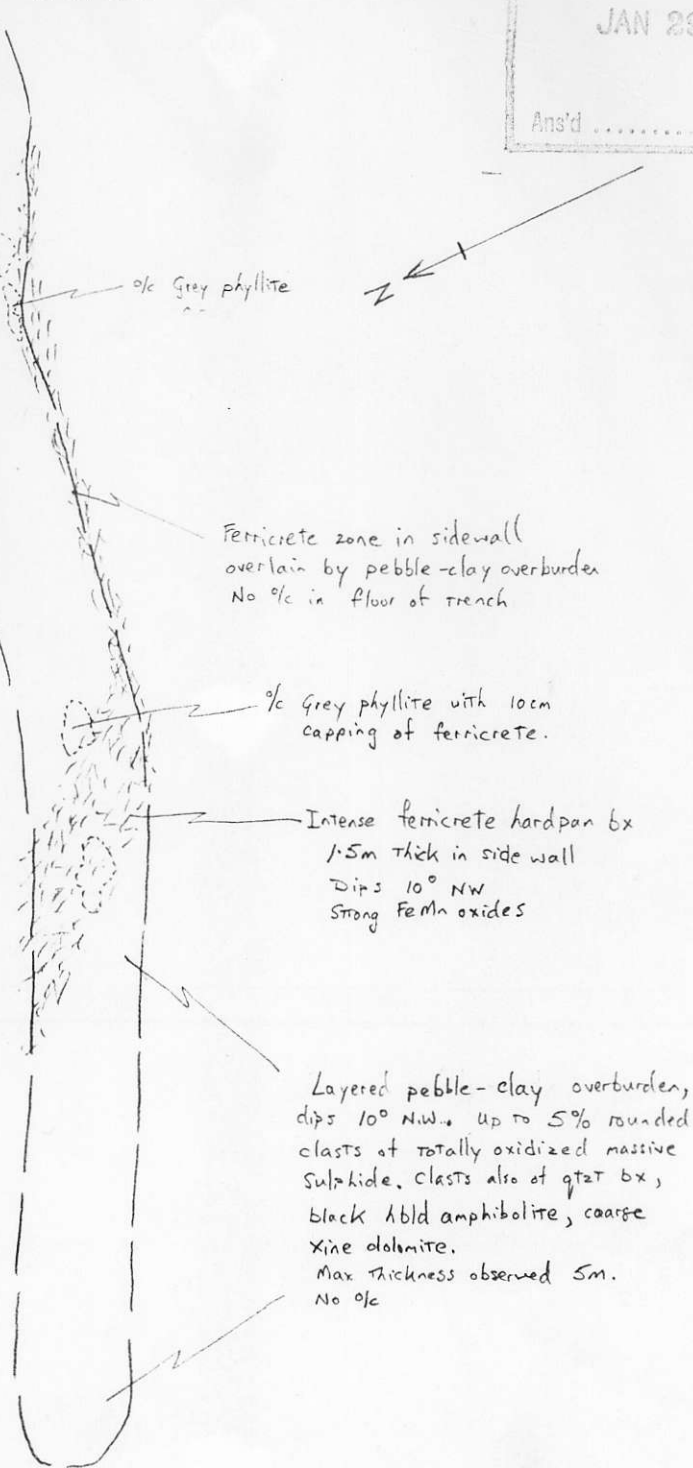 JAN 23
Ans'd ..........
o/c Grey phyllite
N
Ferricrete zone in sidewall
overlain by pebble-clay overburden
No o/c in floor of trench
o/c Grey phyllite with 10cm
capping of ferricrete.
Intense ferricrete hardpan bx
1.5m thick in side wall
Dips 10° NW
Strong FeMn oxides
Layered pebble-clay overburden,
dips 10° N.W.. Up to 5% rounded
clasts of totally oxidized massive
sulphide. Clasts also of qtzt bx,
black hbld amphibolite, coarse
xine dolomite.
Max thickness observed 5m.
No o/c